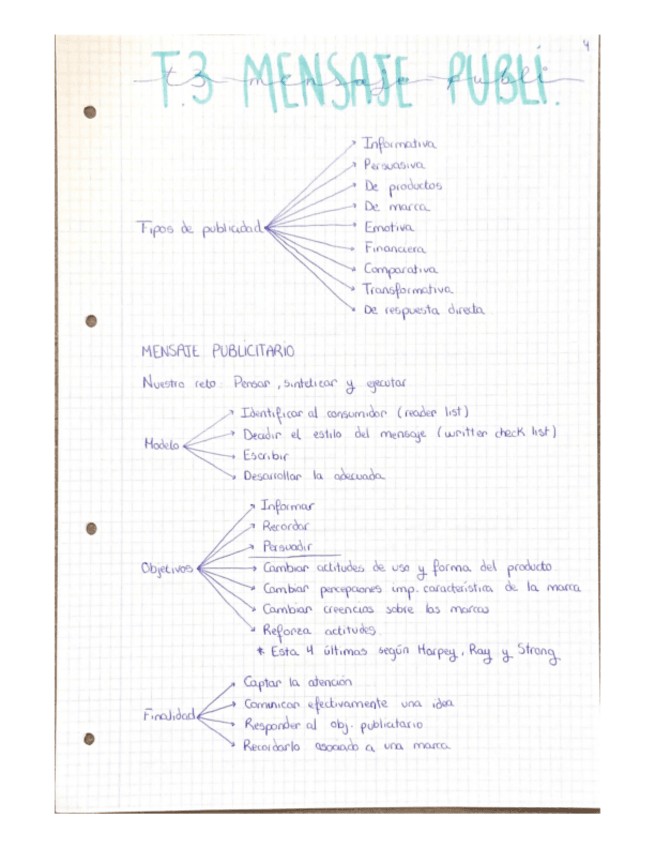 4
T.3 MENSAJE PUBLI.
t.3 mensaje publi
Informativa
Persuasiva
De productos
De marca
Tipos de publicidad
Emotiva
Financiera
Comparativa
Transformativa
De respuesta directa
MENSAJE PUBLICITARIO
Nuestro reto: Pensar, sintetizar y ejecutar
Identificar al consumidor (reader list)
Decidir el estilo del mensaje (writter check list)
Modelo
Escribir
Desarrollar la adecuada
Informar
Recordar
Persuadir
Objetivos
Cambiar actitudes de uso y forma del producto
Cambiar percepciones imp. característica de la marca
Cambiar creencias sobre las marcas
Reforza actitudes
* Esta 4 últimas según Harpey, Ray y Strong
Captar la atención
Comunicar efectivamente una idea
Finalidad
Responder al obj. publicitario
Recordarlo asociado a una marca